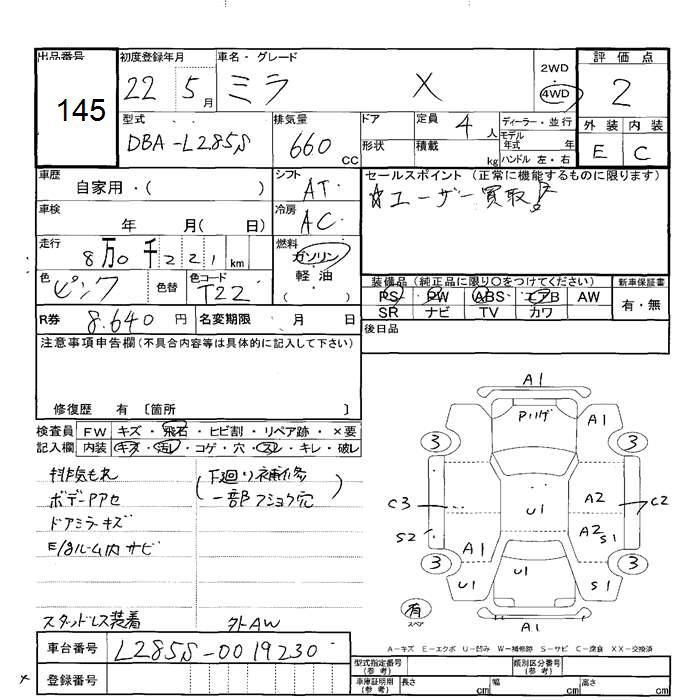 出品番号 145
初度登録年月 22 5月
車名・グレード ミラ X
2WD 4WD
評価点 2
外装 内装
E C
型式 DBA-L285S
排気量 660 CC
ドア
形状
定員 4人
積載 kg
ディーラー・並行
モデル年式 年
ハンドル 左・右
車歴 自家用・( )
シフト AT
セールスポイント (正常に機能するものに限ります)
☆ユーザー買取!
車検 年 月( 日)
冷房 AC
走行 8万0千221km
燃料 ガソリン
軽油
( )
色 ピンク
色替
色コード T22
装備品 (純正品に限り○をつけてください)
新車保証書
PS PW ABS エアB AW
有・無
SR ナビ TV カワ
R券 8.640円
名変期限 月 日
後日品
注意事項申告欄(不具合内容等は具体的に記入して下さい)
修復歴 有 〔箇所 〕
検査員記入欄
FW キズ・飛石・ヒビ割・リペア跡・×要
内装 キズ・汚レ・コゲ・穴・スレ・キレ・破レ
排気もれ
ボデーアセ
ドアミラーキズ
E/gルーム内サビ
(下廻り補修
一部フショク穴)
スタッドレス装着
外AW
A1
Pハゲ
A1
3 3
C3 A2 C2
U1
S2 A2 S1
A1
3 3
U1 U1 S1
有
スペア
A1
A-キズ E-エクボ U-凹み W-補修跡 S-サビ C-腐食 XX-交換済
車台番号 L285S-0019230
登録番号
型式指定番号(参考)
類別区分番号(参考)
車庫証明用(参考) 長さ cm 幅 cm 高さ cm